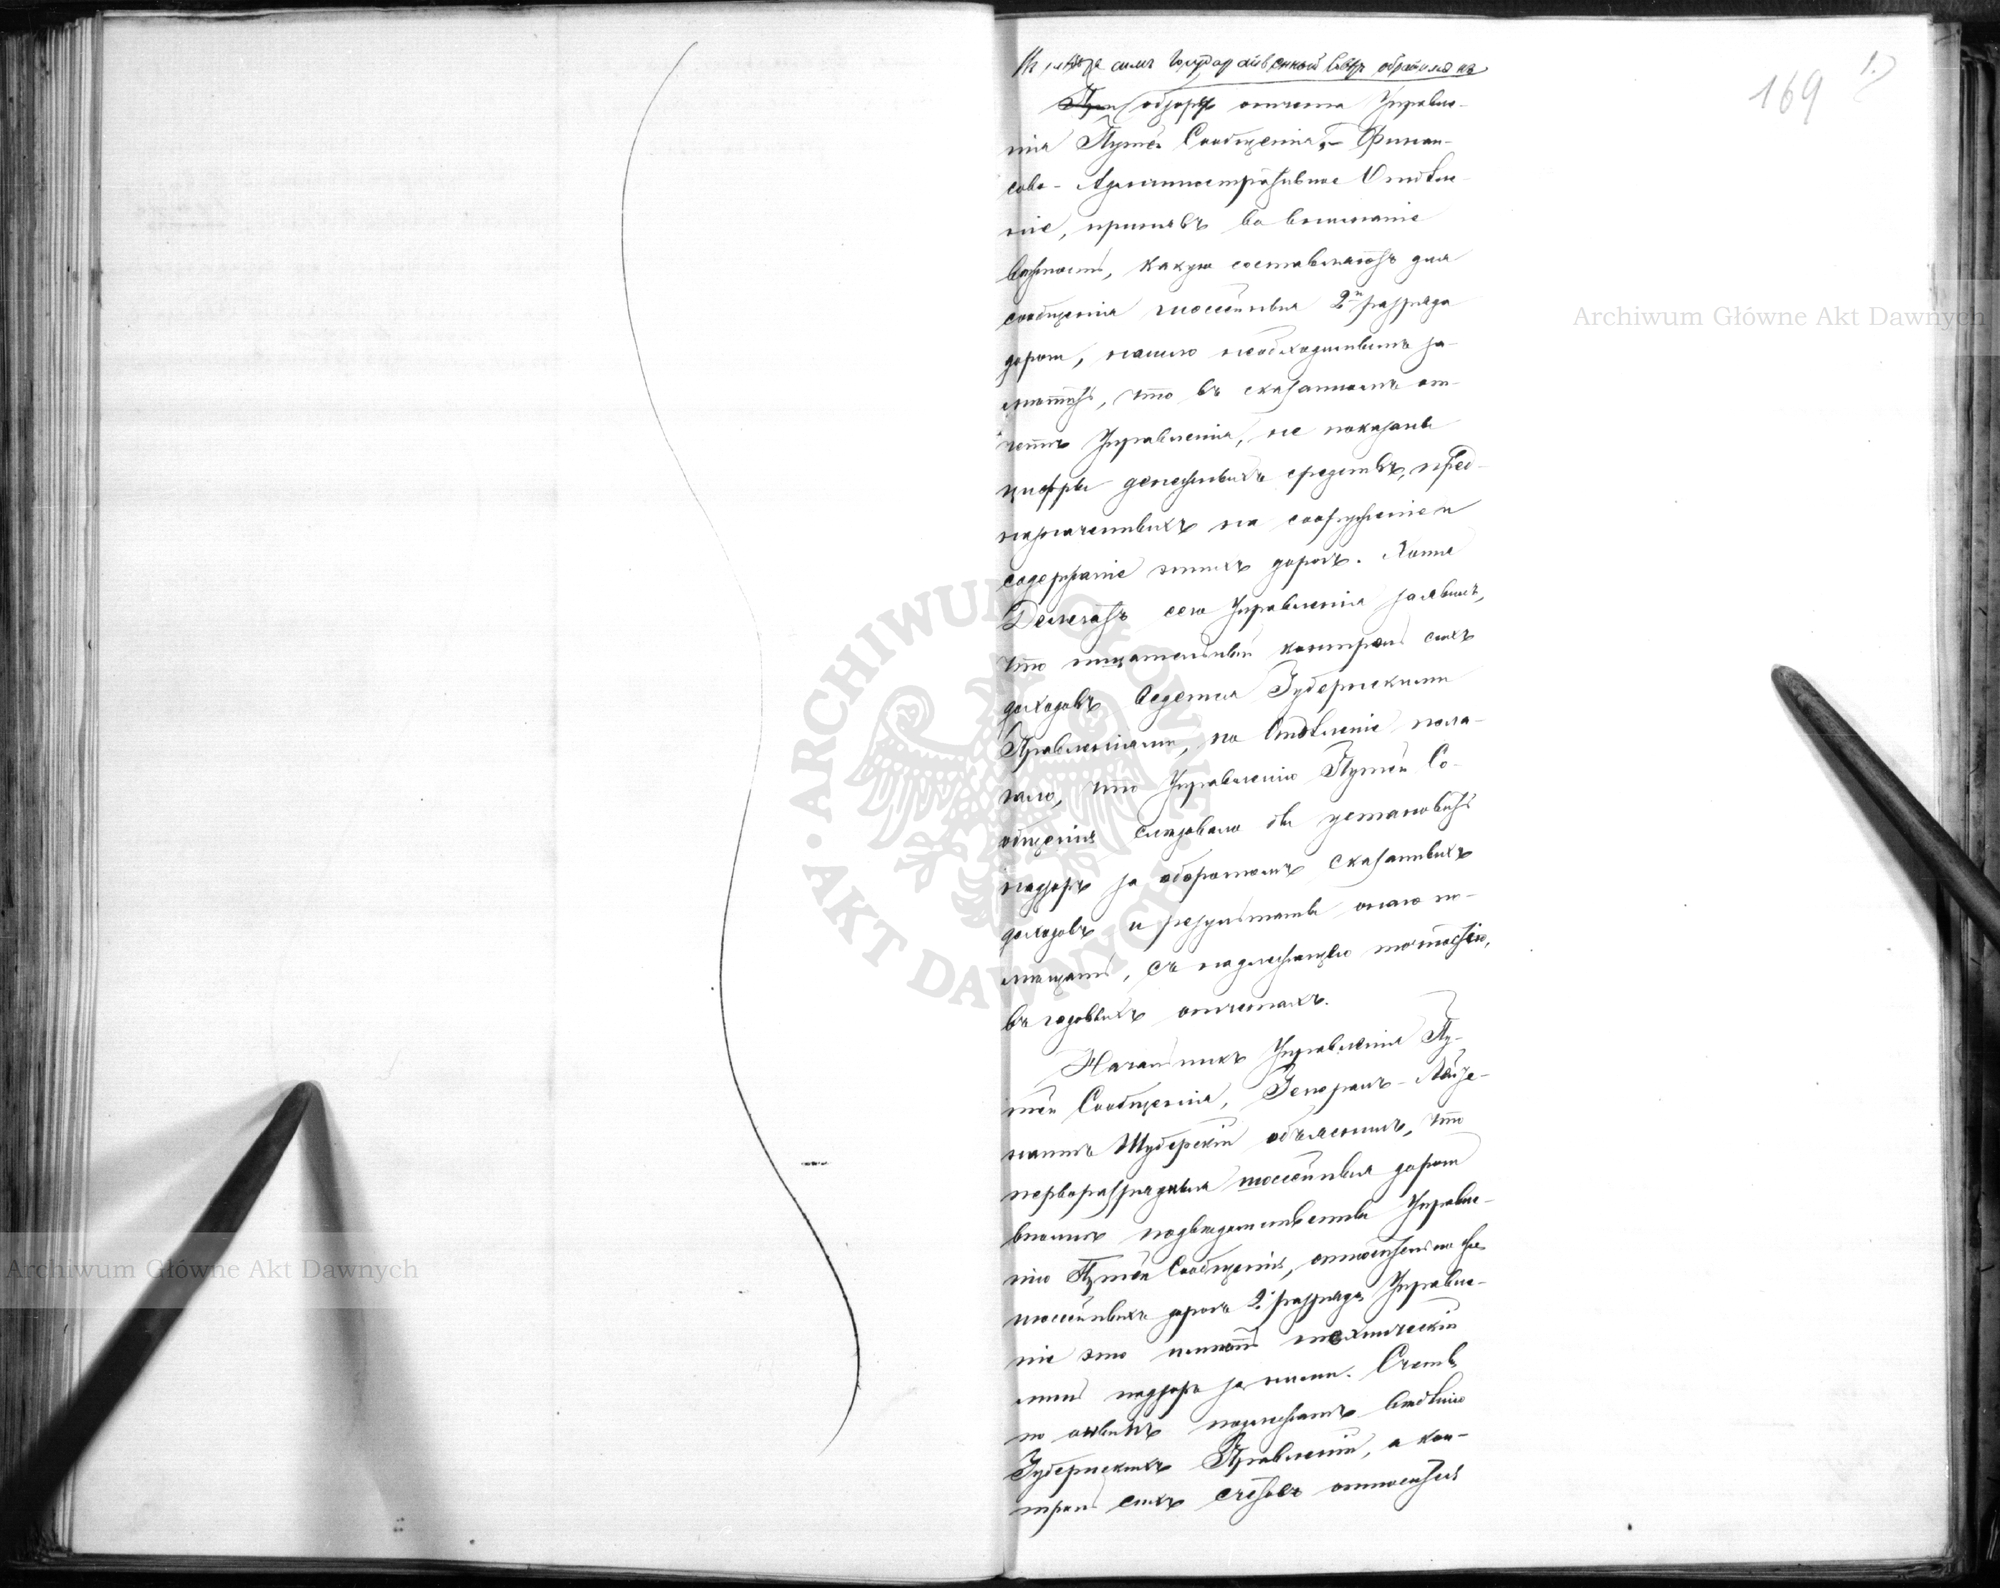 169
1.)
симъ Государственный Совѣтъ обратился къ
При обзору отчета Управле-
нія Путей Сообщенія, Финан-
сово-Административное Отдѣле-
ніе, принявъ во вниманіе
важность, какую составляютъ для
сообщенія шоссейныя 2го разряда
дороги, нашло необходимымъ за-
мѣтить, что въ сказанномъ от-
четѣ Управленія, не показаны
цифры денежныхъ средствъ, пред-
назначенныхъ на сооруженіе и
содержаніе этихъ дорогъ. Хотя
Делегатъ сего Управленія заявилъ,
что тщательный контроль сихъ
доходовъ ведется Губернскими
Правленіями, но Отдѣленіе пола-
гало, что Управленію Путей Со-
общенія слѣдовало бы установить
надзоръ за оборотомъ сказанныхъ
доходовъ и результаты онаго по-
мѣщать, съ надлежащею точностію,
въ годовыхъ отчетахъ.
Начальникъ Управленія Пу-
тей Сообщенія, Генералъ-Лейте-
нантъ Шуберскій объяснилъ, что
перворазрядныя шоссейныя дороги
вполнѣ подвѣдомственны Управле-
нію Путей Сообщенія, относительно же
шоссейныхъ дорогъ 2го разряда, Управле-
ніе это имѣетъ техническій
лишь надзоръ за ними. Счеты
по онымъ подлежатъ вѣдѣнію
Губернскихъ Правленій, а кон-
троль сихъ счетовъ относится
Archiwum Główne Akt Dawnych
Archiwum Główne Akt Dawnych
ARCHIWUM GŁÓWNE AKT DAWNYCH